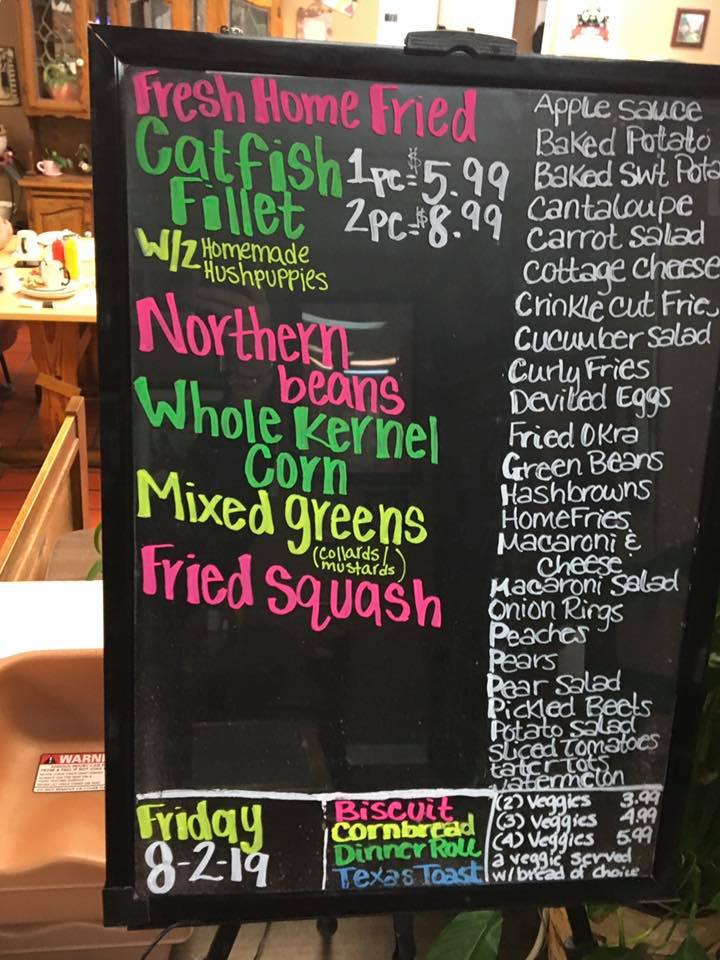 Fresh Home Fried
Catfish
Fillet
1pc=$5.99
2pc=$8.99
W/2 Homemade
Hushpuppies
Northern
beans
Whole Kernel
Corn
Mixed greens
(collards/
mustards)
Fried Squash
Apple sauce
Baked Potato
Baked Swt Pota
Cantaloupe
Carrot Salad
Cottage Cheese
Crinkle Cut Fries
Cucumber Salad
Curly Fries
Deviled Eggs
Fried Okra
Green Beans
Hashbrowns
HomeFries
Macaroni &
Cheese
Macaroni Salad
Onion Rings
Peaches
Pears
Pear Salad
Pickled Beets
Potato Salad
Sliced Tomatoes
tater tots
Watermelon
Friday
8-2-19
Biscuit
Cornbread
Dinner Roll
Texas Toast
(2) Veggies 3.99
(3) Veggies 4.99
(4) Veggies 5.99
a veggie served
w/bread of choice
WARNI